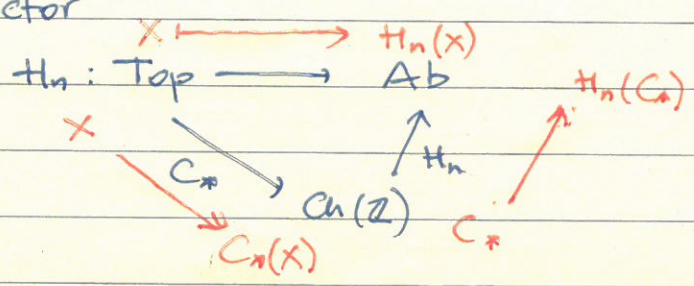 ctor
X ⟼ Hₙ(X)
Hₙ : Top ⟶ Ab
Hₙ(C*)
X
C*
Hₙ
Ch(ℤ)
C*
C*(X)